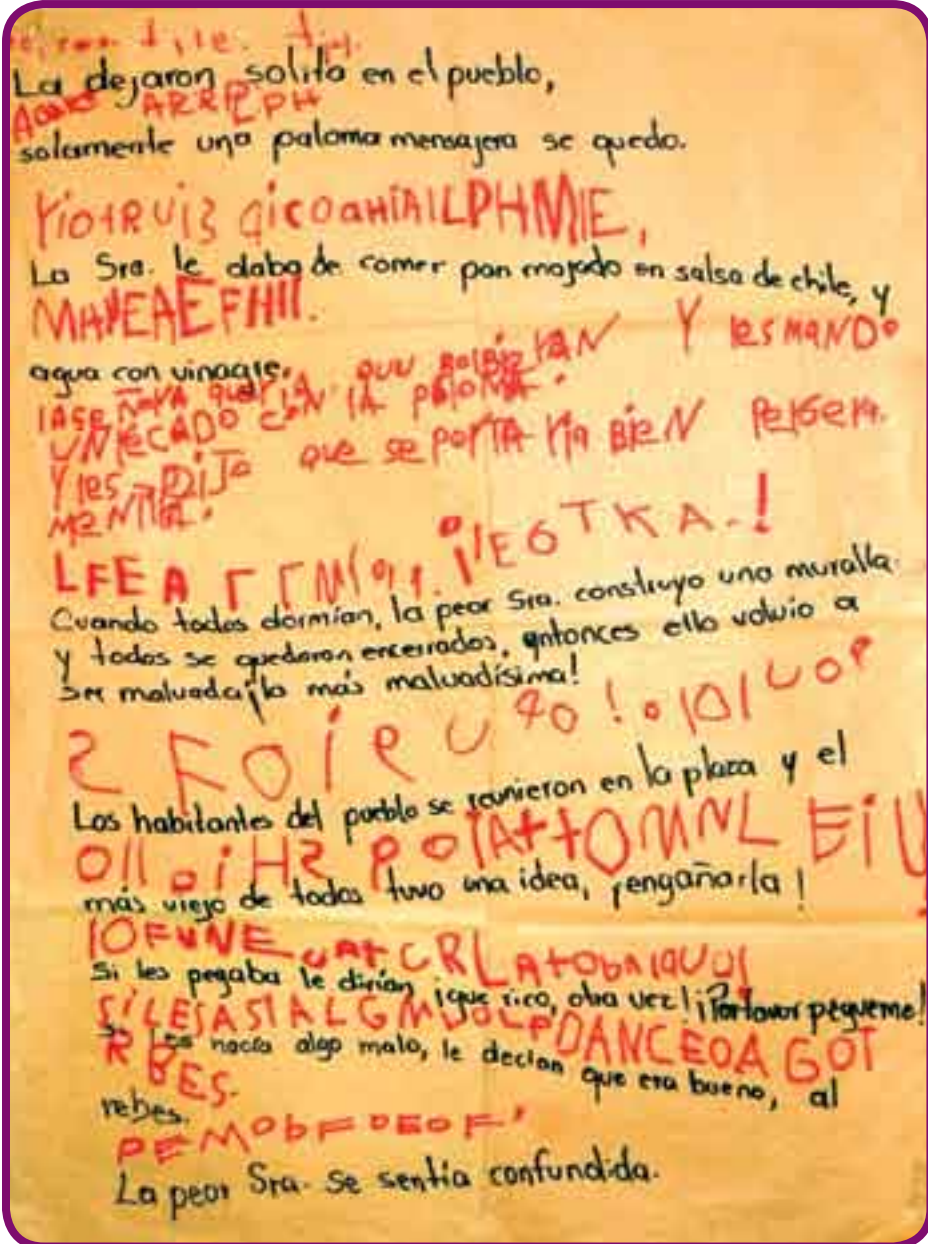 La dejaron solita en el pueblo,
ARRLPH
solamente una paloma mensajera se quedo.
YIOTRUIS GICOAHIAILPHMIE,
La Sra. le daba de comer pan mojado en salsa de chile, y
MAYEAEFHII.
agua con vinagre. Y lESMANDO
lASEÑOrA QUErIA QUU BOlBIErAN
UN rECADO CON lA PAlOMA.
Y lES DIJo QUE SE POrTArIA BIEN PErOErA
MENTIrA.
LFEA ¡lEOTKA.!
Cuando todos dormían, la peor Sra. construyo una muralla.
y todos se quedaron encerrados, entonces ella volvio a
ser malvada ¡la más malvadísima!
Los habitantes del pueblo se reunieron en la plaza y el
más viejo de todos tuvo una idea, ¡engañarla!
Si les pegaba le dirían ¡que rico, otra vez! ¡Porfavor pegueme!
SILESASIALGMUOLPDANCEOAGOT
Si les hacía algo malo, le decían que era bueno, al
RBES.
rebes.
PEMObFDEOF'
La peor Sra. se sentía confundida.